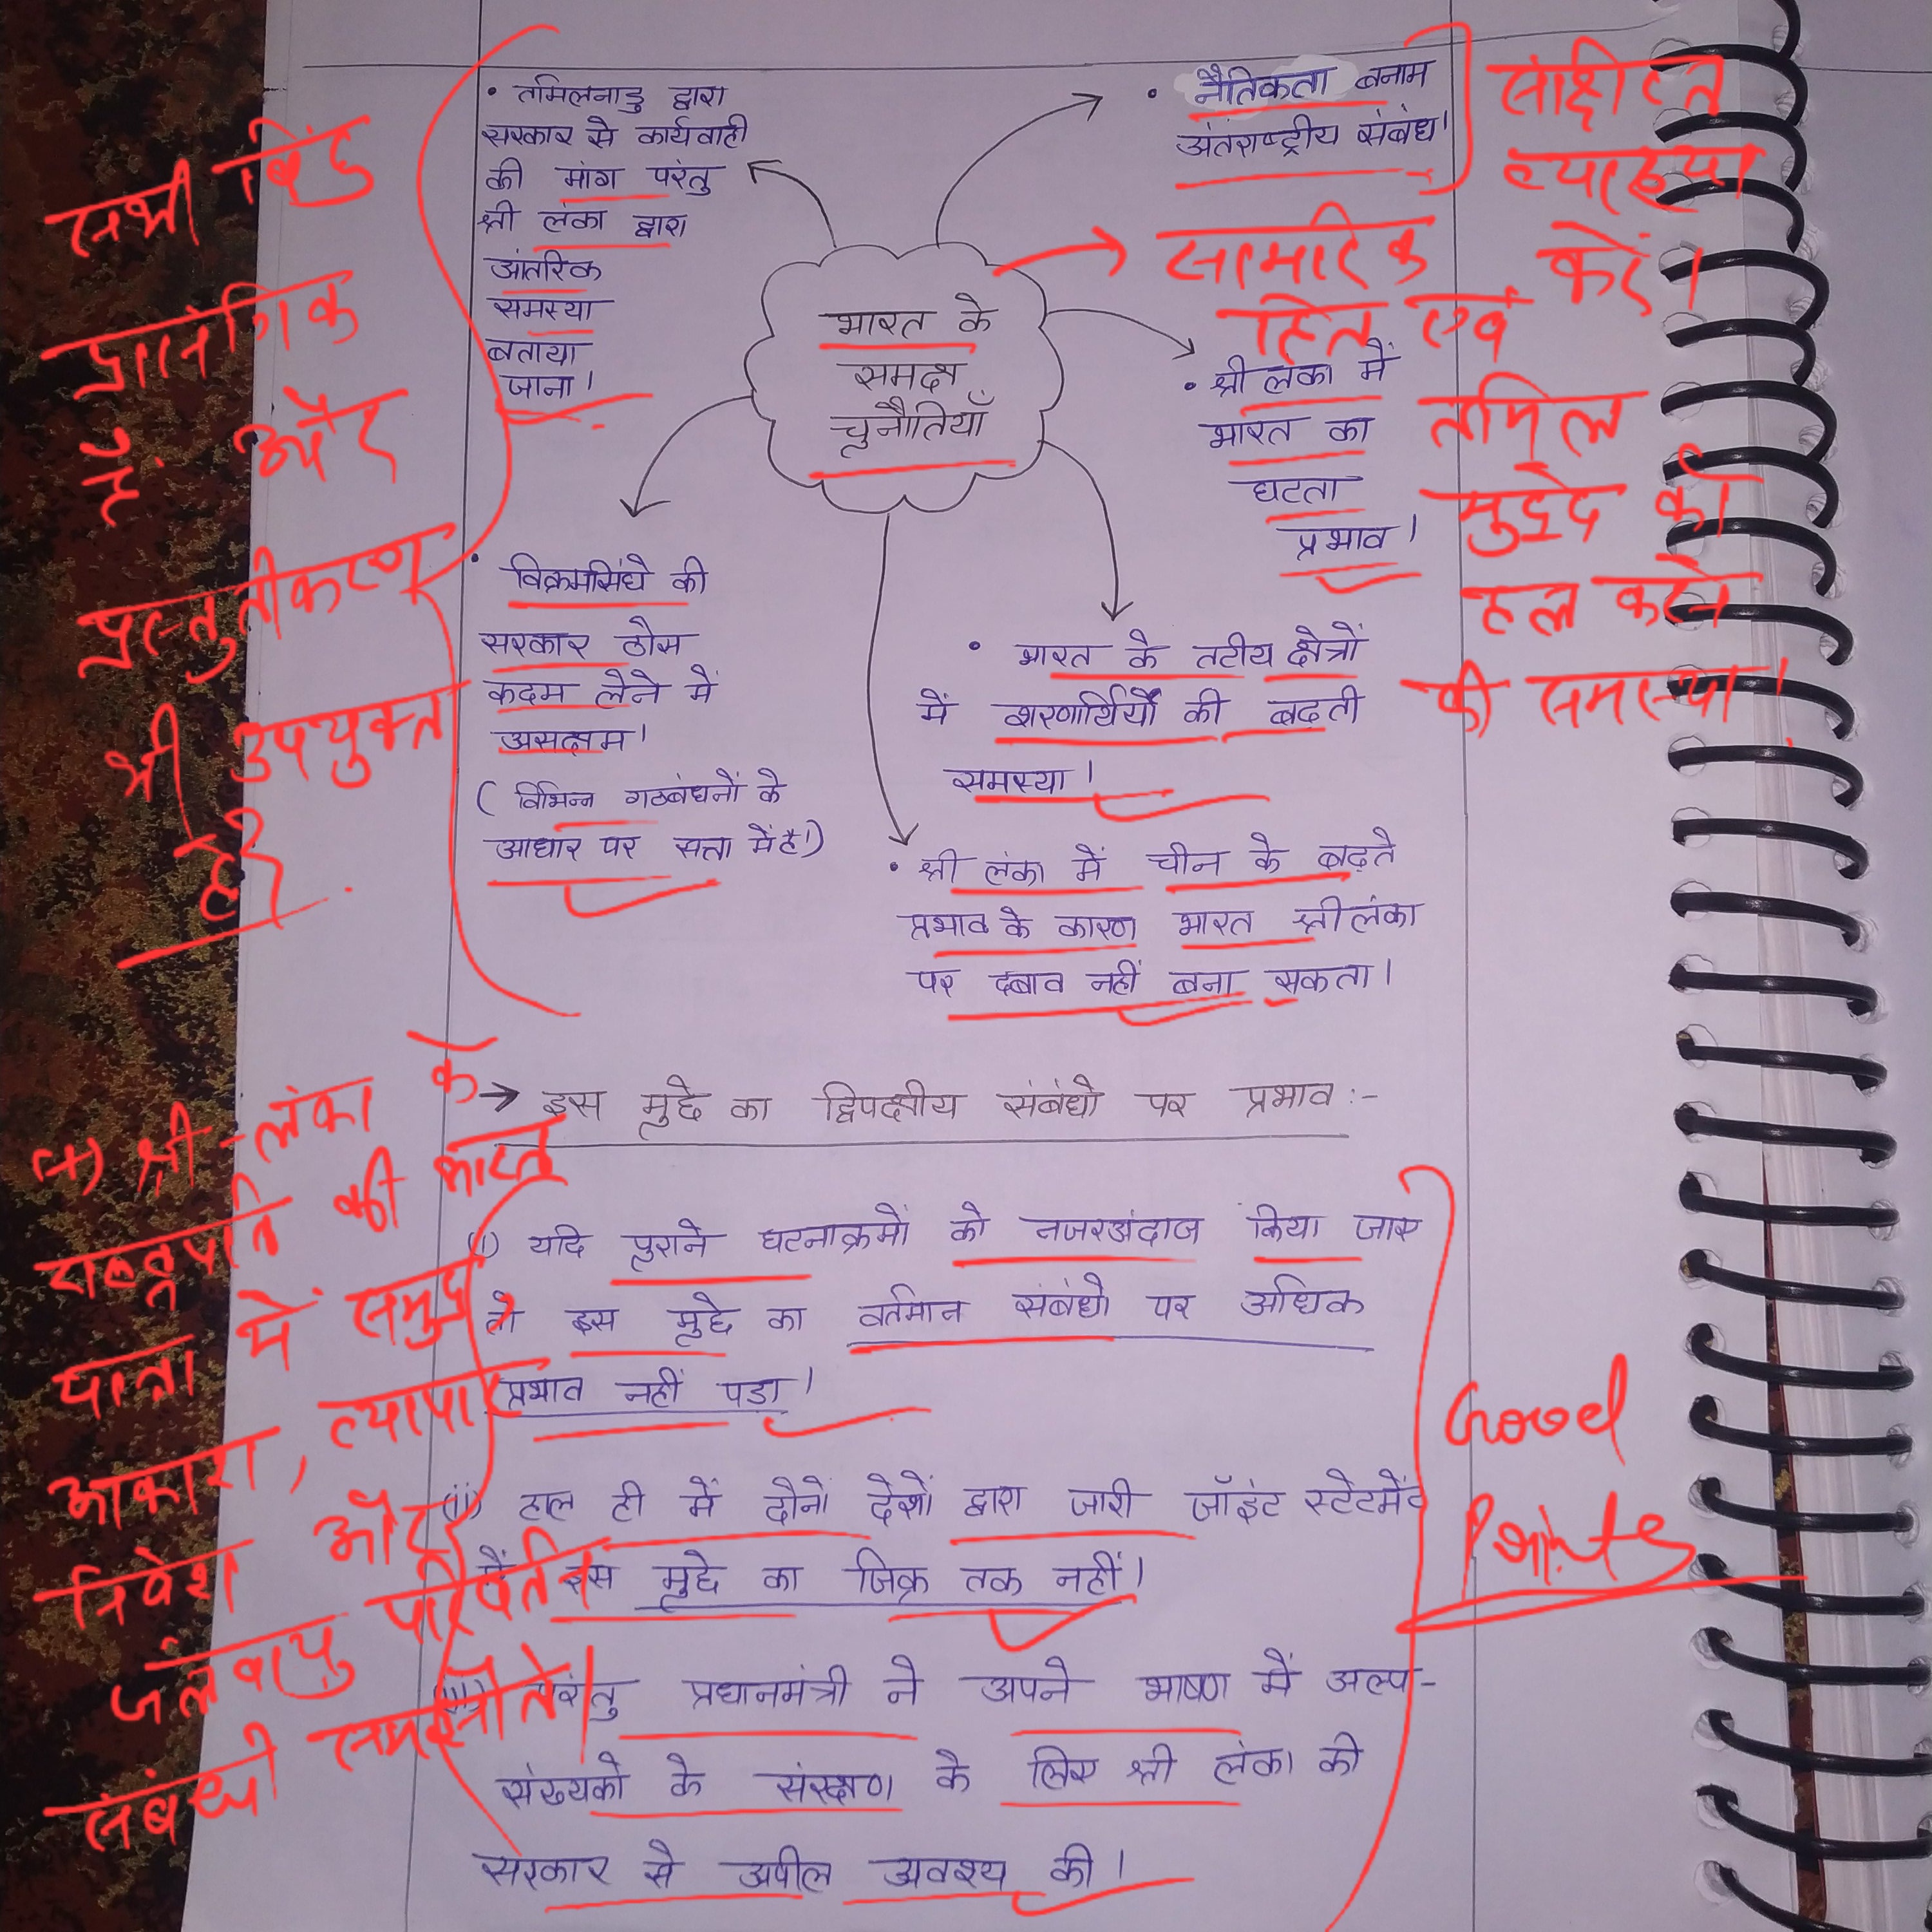 • तमिलनाडु द्वारा
सरकार से कार्यवाही
की मांग परंतु
श्री लंका द्वारा
आंतरिक
समस्या
बताया
जाना।
• नैतिकता बनाम
अंतराष्ट्रीय संबंध।
भारत के
समक्ष
चुनौतियाँ
• श्री लंका में
भारत का
घटता
प्रभाव।
• विक्रमसिंघे की
सरकार ठोस
कदम लेने में
असक्षम।
( विभिन्न गठबंधनों के
आधार पर सत्ता में है।)
• भारत के तटीय क्षेत्रों
में शरणार्थियों की बढ़ती
समस्या।
• श्री लंका में चीन के बढ़ते
प्रभाव के कारण भारत श्री लंका
पर दबाव नहीं बना सकता।
→ इस मुद्दे का द्विपक्षीय संबंधो पर प्रभाव :-
(i) यदि पुराने घटनाक्रमों को नजरअंदाज किया जाए
तो इस मुद्दे का वर्तमान संबंधो पर अधिक
प्रभाव नहीं पड़ा।
(ii) हाल ही में दोनो देशों द्वारा जारी जॉइंट स्टेटमेंट
में इस मुद्दे का जिक्र तक नहीं।
(iii) परंतु प्रधानमंत्री ने अपने भाषण में अल्प-
संख्यको के संरक्षण के लिए श्री लंका की
सरकार से अपील अवश्य की।
सभी बिंदु
प्रासंगिक
हैं और
प्रस्तुतीकरण
भी उपयुक्त
है।
(+) श्री-लंका के
राष्ट्रपति की भारत
यात्रा में समुद्र
आकाश, व्यापार
निवेश और
जलवायु परिवर्तन
संबंधी समझौते।
संक्षिप्त
व्याख्या
करें।
→ सामरिक
हित एवं
तमिल
मुद्दे को
हल करने
की समस्या।
Good
Points